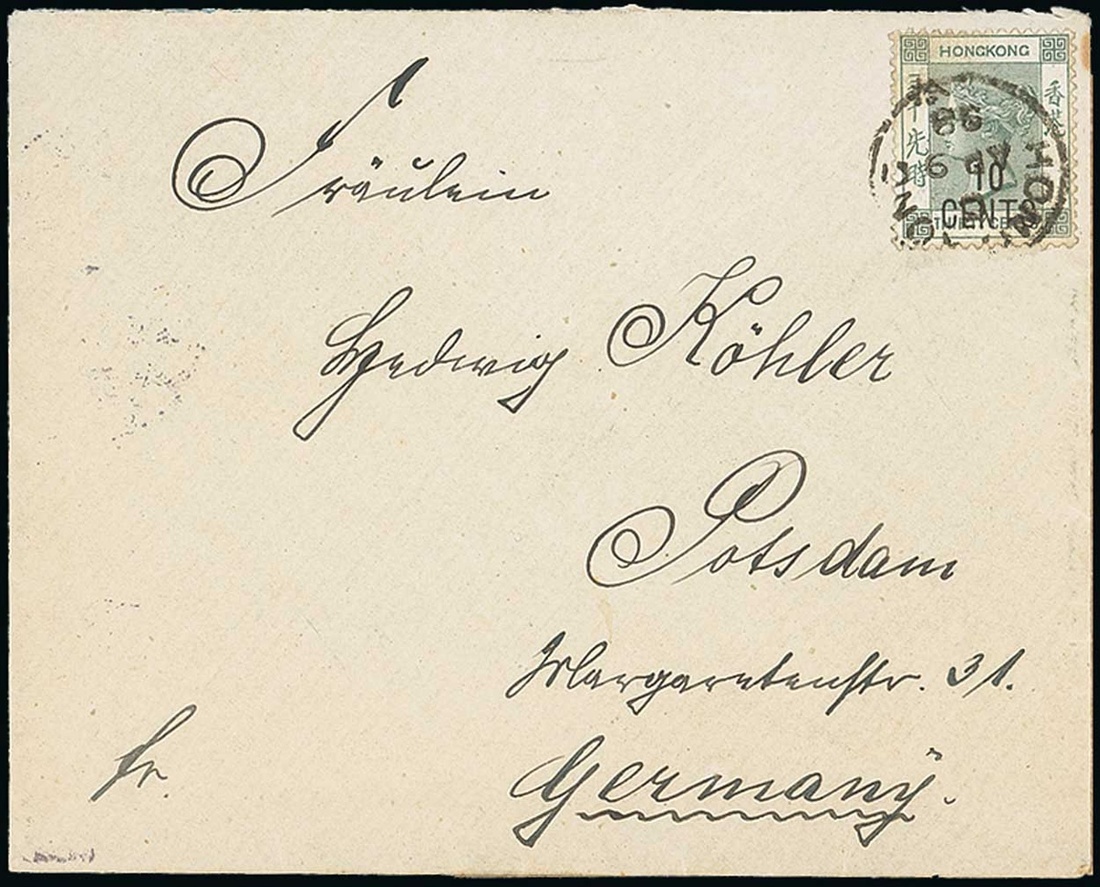 HONGKONG
香港
先時
10
CENTS
HONG KONG
98
Fräulein
Hedwig Köhler
Potsdam
Margaretenstr. 31.
fr.
Germany.